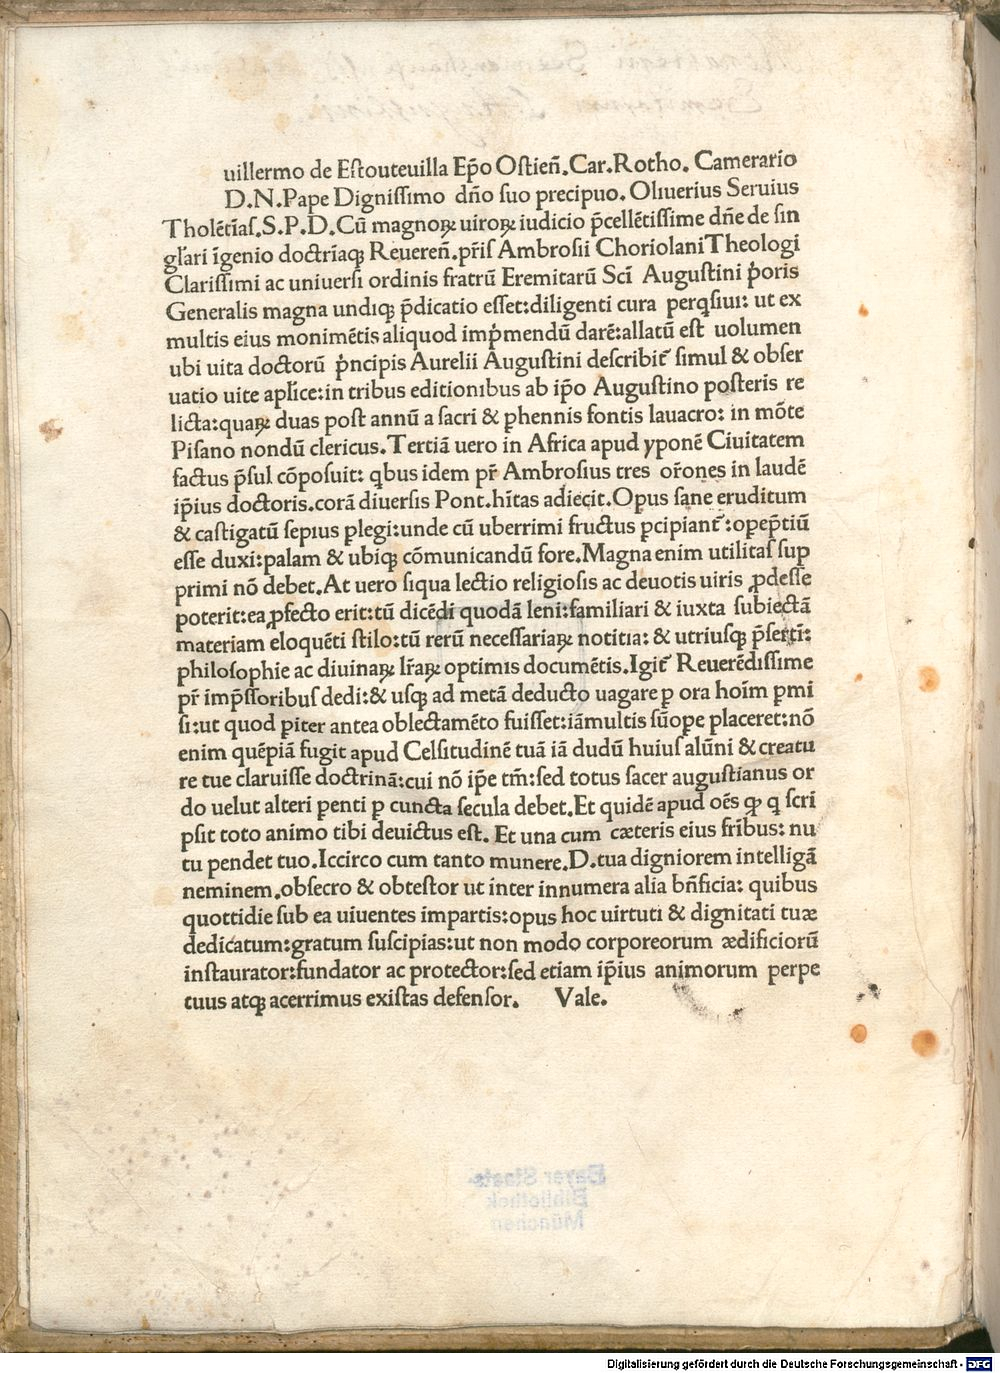 uillermo de Estouteuilla Ep̄o Ostien̄.Car.Rotho. Camerario
D.N.Pape Dignissimo dn̄o suo precipuo.Oliuerius Seruius
Tholēt̄as.S.P.D.Cū magnoꝝ uiroꝝ iudicio p̄cellētissime dn̄e de sin
gľari īgenio doctrīaqꝫ Reueren̄.pr̄is Ambrosii Choriolani Theologi
Clarissimi ac uniuersi ordinis fratrū Eremitarū Sci̅ Augustini p̓oris
Generalis magna undiqꝫ p̄dicatio esset:diligenti cura perqsiui: ut ex
multis eius monimētis aliquod imp̓mendū darē:allatū est uolumen
ubi uita doctorū p̓ncipis Aurelii Augustini describit᷑ simul & obser
uatio uite apľice:in tribus editionibus ab ip̄o Augustino posteris re
licta:quaꝝ duas post annū a sacri & ꝑhennis fontis lauacro: in mōte
Pisano nondū clericus.Tertiā uero in Africa apud yponē Ciuitatem
factus p̄sul cōposuit: qbus idem pr̄ Ambrosius tres or̄ones in laudē
ip̄ius doctoris.corā diuersis Pont.hītas adiecit.Opus sane eruditum
& castigatū sepius ꝑlegi:unde cū uberrimi fructus ꝑcipiant᷑:opep̄tiū
esse duxi:palam & ubiqꝫ cōmunicandū fore.Magna enim utilitas sup
primi nō debet.At uero siqua lectio religiosis ac deuotis uiris ꝓdesse
poterit:ea ꝓfecto erit:tū dicēdi quodā leni:familiari & iuxta subiectā
materiam eloquēti stilo:tū rerū necessariaꝝ notitia: & utriusqꝫ p̄serti̅:
philosophie ac diuinaꝝ lr̄aꝝ optimis documētis.Igit᷑ Reuerēdissime
pr̄ imp̄ssoribus dedi:& usqꝫ ad metā deducto uagare ꝑ ora hoīm ꝑmi
si:ut quod ꝑiter antea oblectamēto fuisset:iāmultis sūoꝑe placeret:nō
enim quēpiā fugit apud Celsitudinē tuā iā dudū huius alūni & creatu
re tue claruisse doctrinā:cui nō ip̄e tm̄:sed totus sacer augustianus or
do uelut alteri ꝑenti ꝑ cuncta secula debet.Et quidē apud oēs qꝫ q scri
psit toto animo tibi deuictus est. Et una cum cæteris eius fr̄ibus: nu
tu pendet tuo.Iccirco cum tanto munere.D.tua digniorem intelligā
neminem.obsecro & obtestor ut inter innumera alia bn̄ficia: quibus
quottidie sub ea uiuentes impartis:opus hoc uirtuti & dignitati tuæ
dedicatum:gratum suscipias:ut non modo corporeorum ædificiorū
instaurator:fundator ac protector:sed etiam ip̄ius animorum perpe
tuus atqꝫ acerrimus existas defensor. Vale.
Bayer Staats-
Bibliothek
München
Digitalisierung gefördert durch die Deutsche Forschungsgemeinschaft - DFG